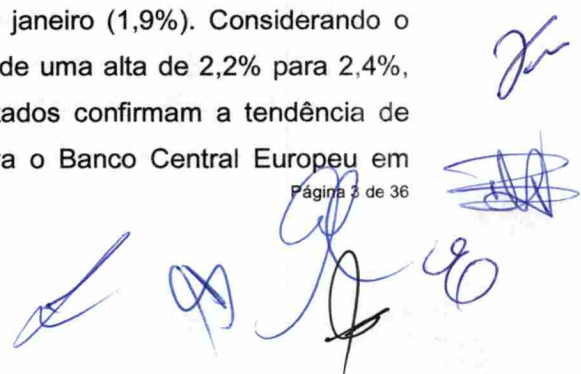 janeiro (1,9%). Considerando o
de uma alta de 2,2% para 2,4%,
tados confirmam a tendência de
a o Banco Central Europeu em
Página 3 de 36